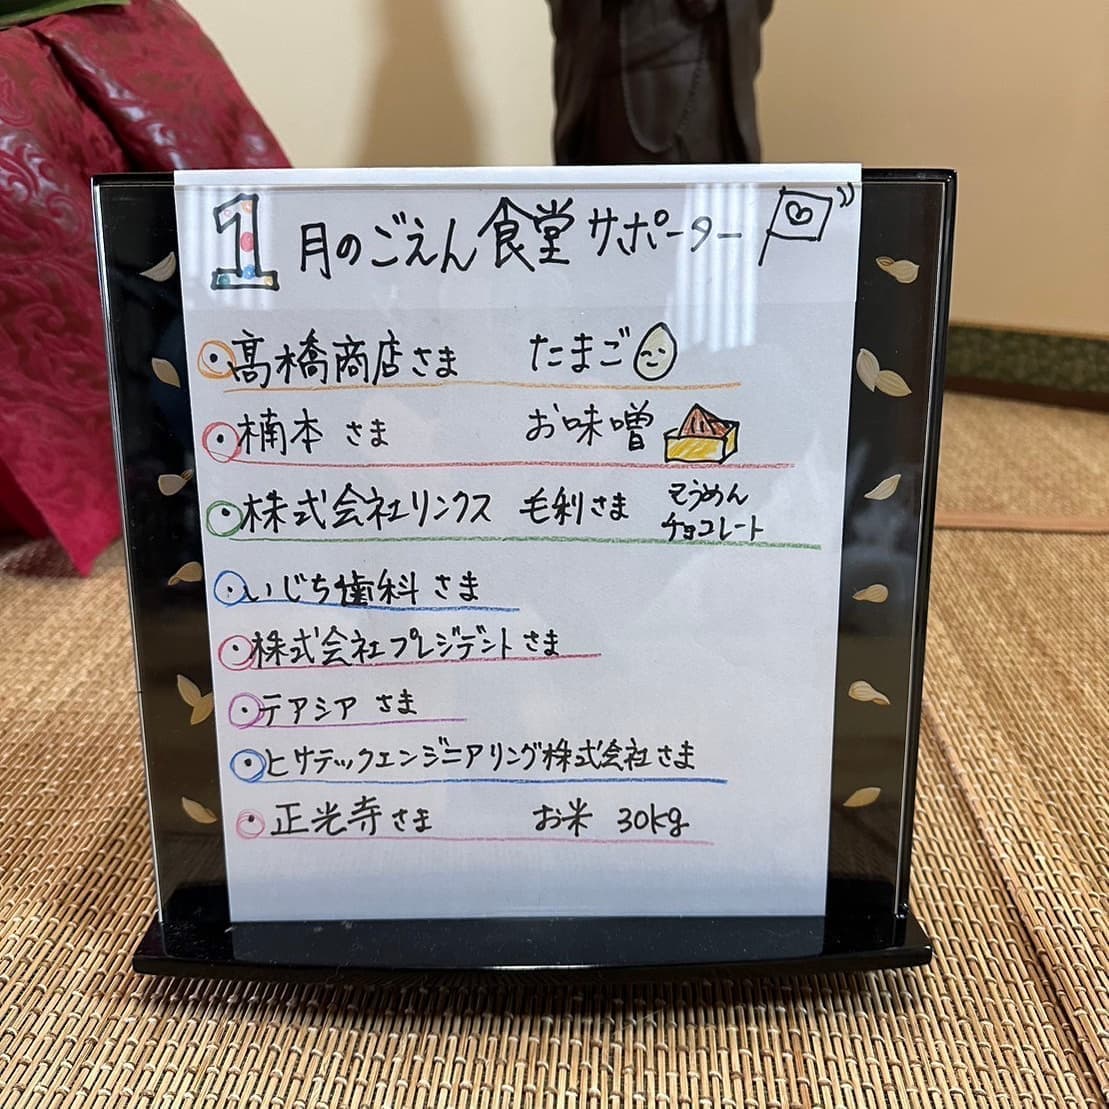 1月のごえん食堂サポーター
髙橋商店さま たまご
楠本 さま お味噌
株式会社リンクス 毛利さま そうめん
チョコレート
いじち歯科 さま
株式会社プレジデントさま
テアシア さま
ヒサテックエンジニアリング株式会社さま
正光寺さま お米 30kg